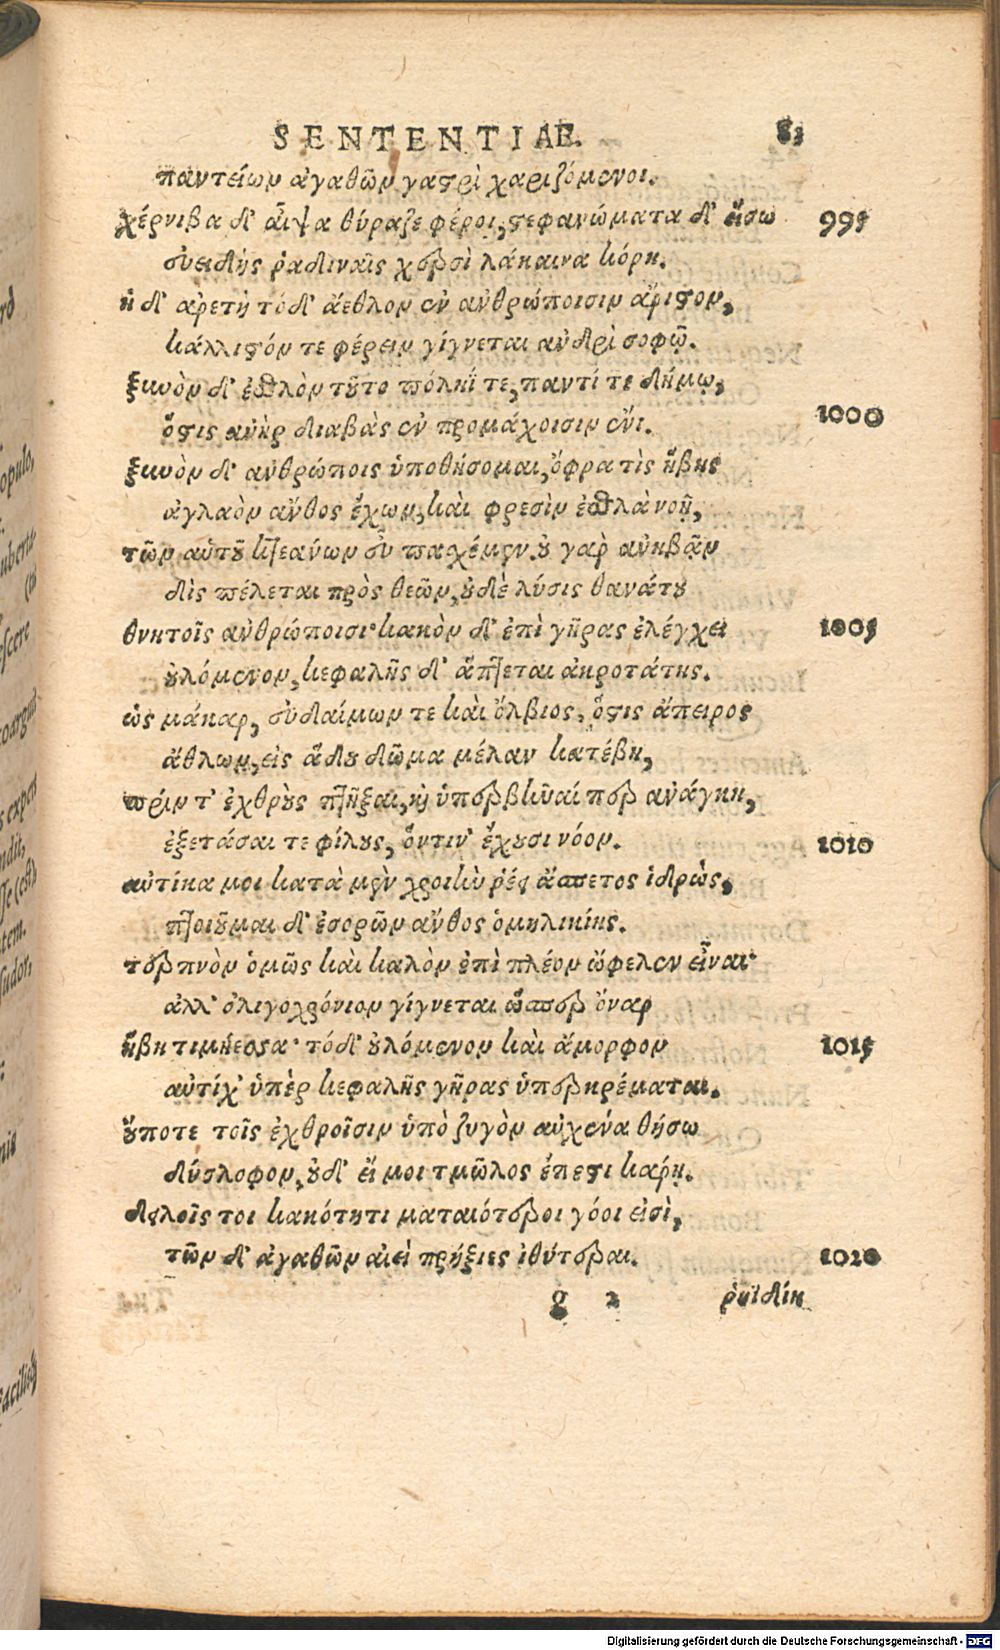 SENTENTIAE. 83
παντείων ἀγαθῶν γαστρὶ χαριζόμενοι.
χέρνιβα δ' αἶψα θύραζε φέροι, στεφανώματα δ' εἴσω 995
εὐειδὴς ῥαδιναῖς χερσὶ λάκαινα κόρη.
ἡ δ' ἀρετὴ τόδ' ἄεθλον ἐν ἀνθρώποισιν ἄριστον,
κάλλιστόν τε φέρειν γίγνεται ἀνδρὶ σοφῷ.
ξυνὸν δ' ἐσθλὸν τοῦτο πόληΐ τε, παντί τε δήμῳ,
ὅστις ἀνὴρ διαβὰς ἐν προμάχοισιν ἔνι. 1000
ξυνὸν δ' ἀνθρώποις ὑποθήσομαι, ὄφρα τὶς ἥβης
ἀγλαὸν ἄνθος ἔχων, καὶ φρεσὶν ἐσθλὰ νοῇ,
τῶν αὐτοῦ κτεάνων εὖ πασχέμεν. οὐ γὰρ ἀνηβᾷν
δὶς πέλεται πρὸς θεῶν, οὐδὲ λύσις θανάτου
θνητοῖς ἀνθρώποισι· κακὸν δ' ἐπὶ γῆρας ἐλέγχει 1005
οὐλόμενον, κεφαλῆς δ' ἅπτεται ἀκροτάτης.
ὡς μάκαρ, εὐδαίμων τε καὶ ὄλβιος, ὅστις ἄπειρος
ἄθλων, εἰς ᾅδου δῶμα μέλαν κατέβη,
πρίν τ' ἐχθροὺς πτῆξαι, καὶ ὑπερβῆναί περ ἀνάγκη,
ἐξετάσαι τε φίλους, ὅντιν' ἔχουσι νόον. 1010
αὐτίκα μοι κατὰ μὲν χροιὴν ῥέει ἄσπετος ἱδρώς,
πτοιοῦμαι δ' ἐσορῶν ἄνθος ὁμηλικίης.
τερπνὸν ὁμῶς καὶ καλὸν ἐπὶ πλέον ὤφελεν εἶναι·
ἀλλ' ὀλιγοχρόνιον γίγνεται ὥσπερ ὄναρ
ἥβη τιμήεσσα· τόδ' οὐλόμενον καὶ ἄμορφον 1015
αὐτίχ' ὑπὲρ κεφαλῆς γῆρας ὑπερκρέμαται.
οὔποτε τοῖς ἐχθροῖσιν ὑπὸ ζυγὸν αὐχένα θήσω
δύσλοφον, οὐδ' εἴ μοι τμῶλος ἔπεστι κάρῃ.
δειλοῖς τοι κακότητι ματαιότεροι γόοι εἰσὶ,
τῶν δ' ἀγαθῶν αἰεὶ πρήξιες ἰθύτεραι. 1020
g 2 ῥηϊδίη
Digitalisierung gefördert durch die Deutsche Forschungsgemeinschaft - DFG